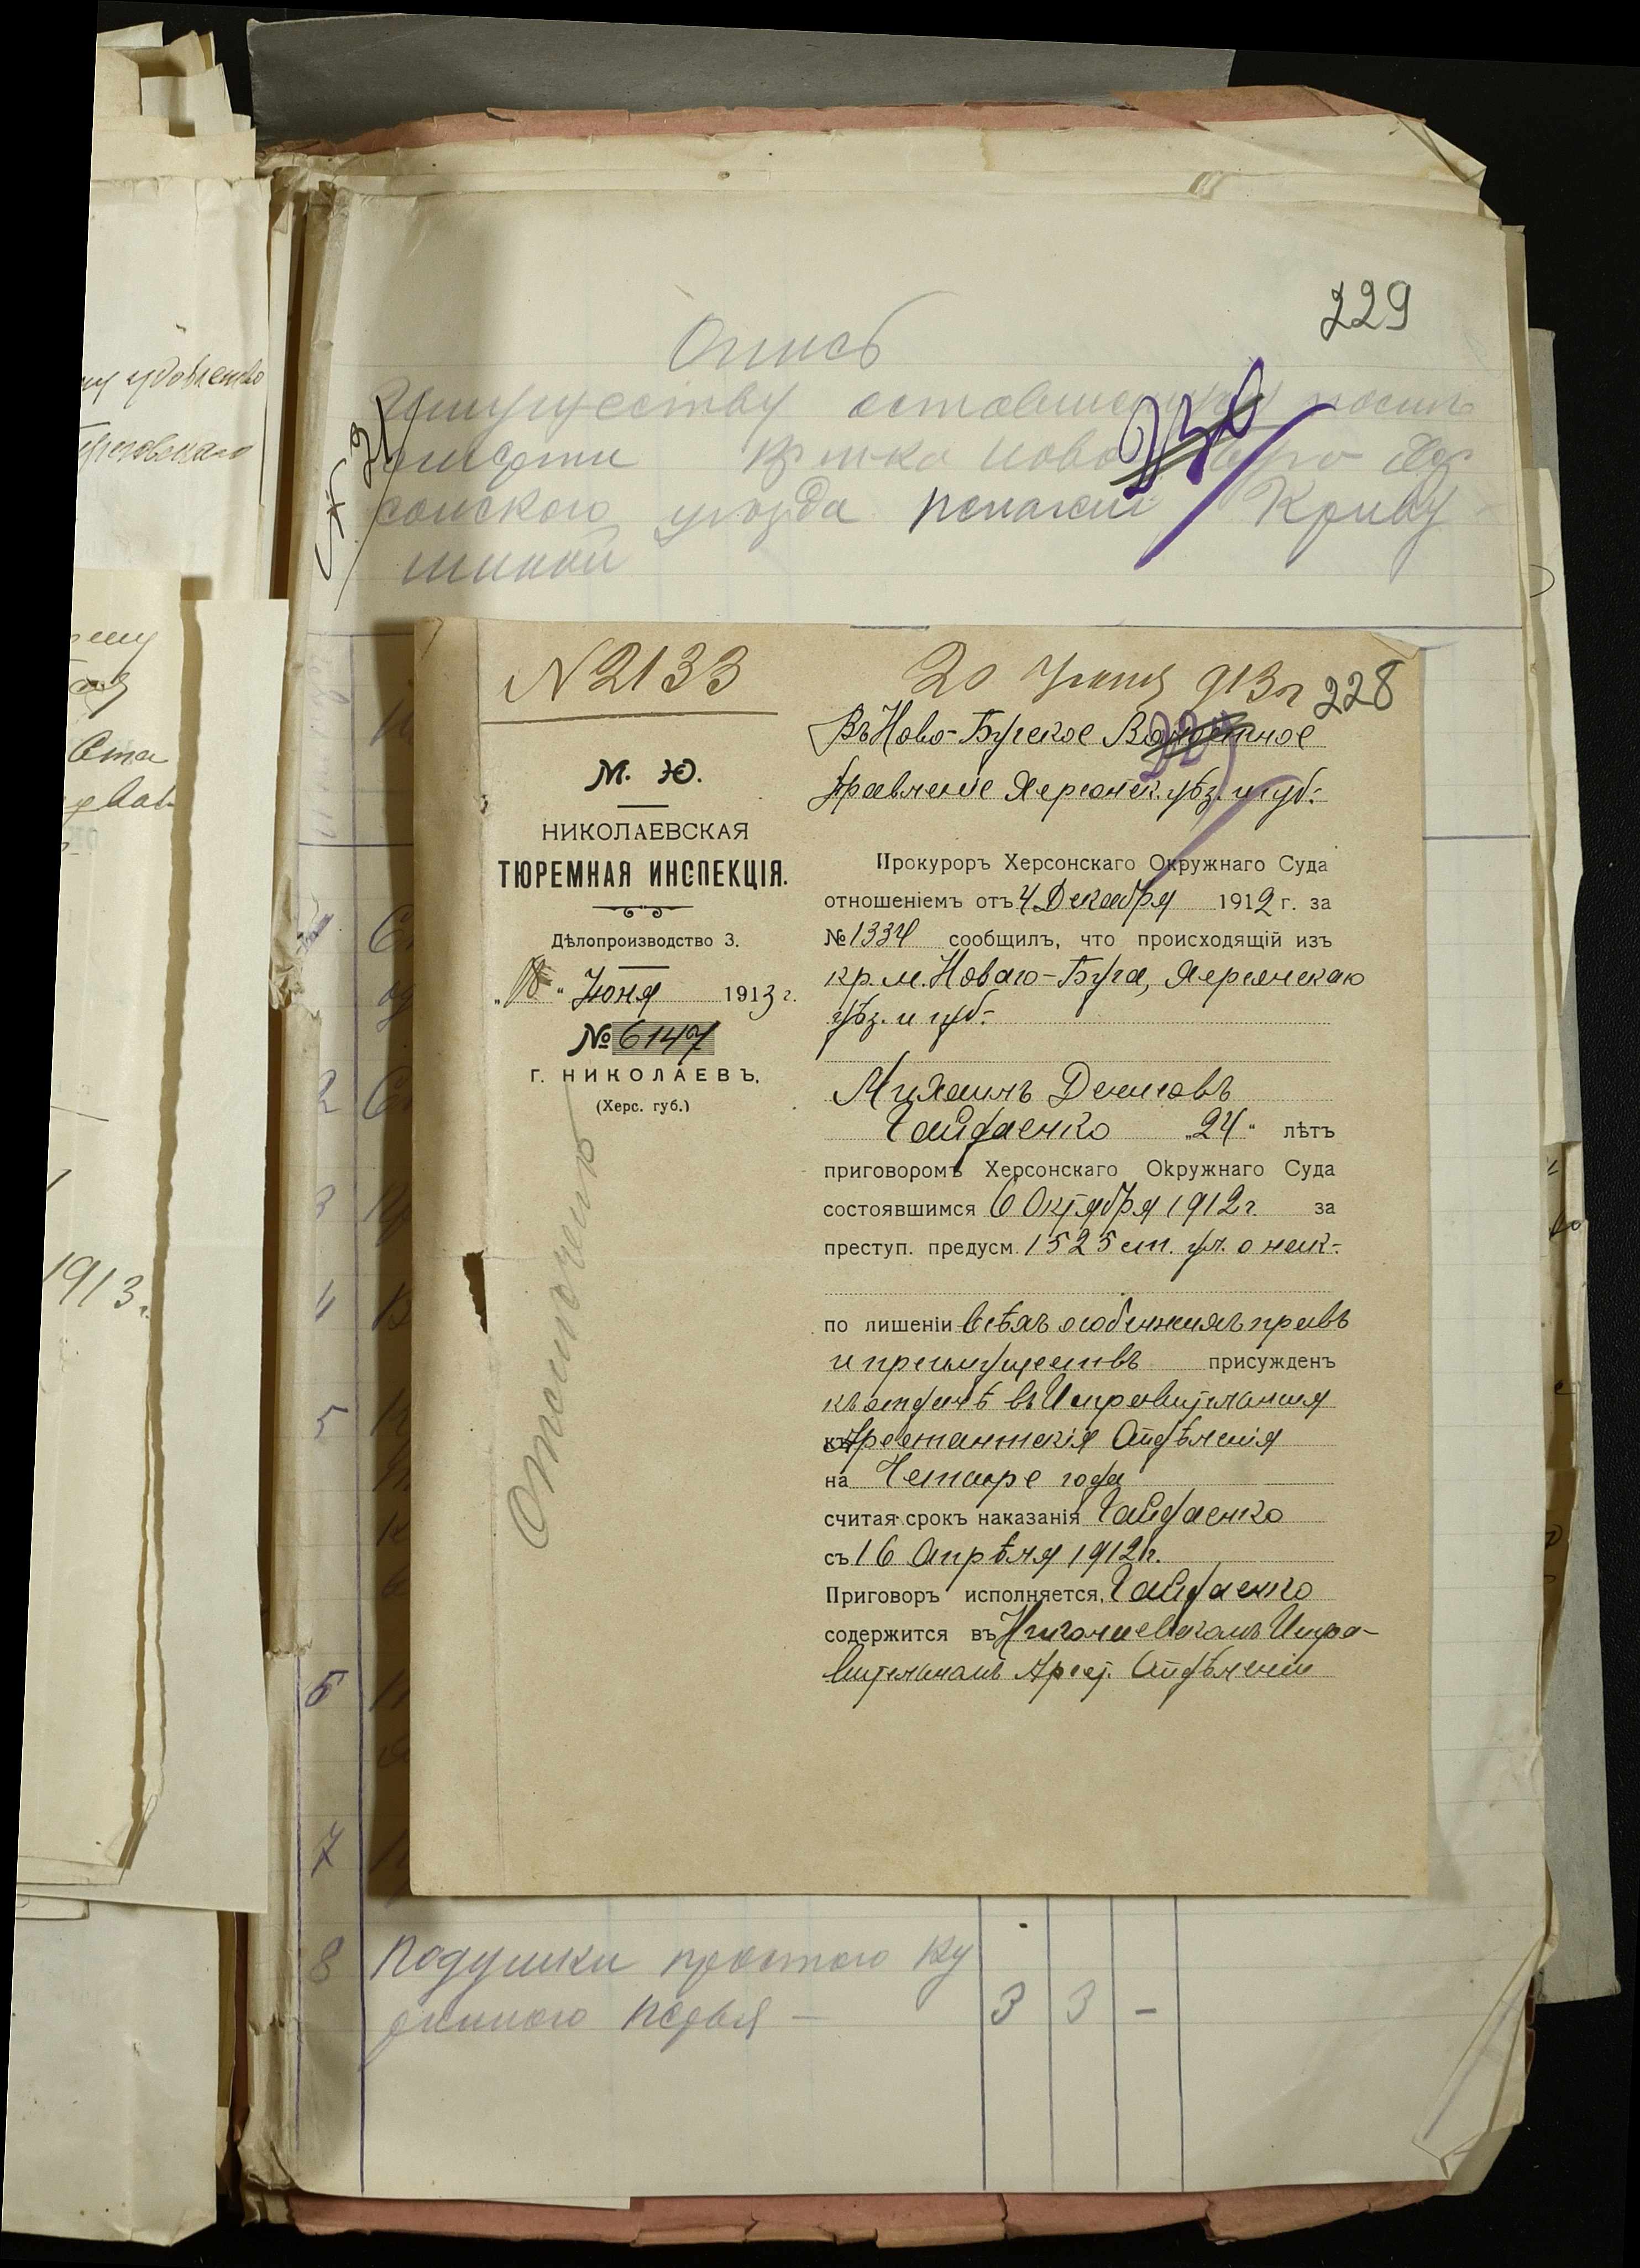 229
Опись
Имуществу оставшемуся после
смерти кр-нки Ново Хер
сонского уезда Пелагеи Криву
шиной
№2133
20 Июня 913 г
228
М. Ю.
НИКОЛАЕВСКАЯ
ТЮРЕМНАЯ ИНСПЕКЦІЯ.
Дѣлопроизводство 3.
„18“ Июня 1913 г.
№ 6147
Г. НИКОЛАЕВЪ,
(Херс. губ.)
Въ Ново-Бугское Волостное
Правленіе Херсонск. уѣз. и губ.
Прокуроръ Херсонскаго Окружнаго Суда
отношеніемъ отъ 4 Декабря 1912 г. за
№ 1334 сообщилъ, что происходящій изъ
кр. м. Новаго-Буга, Херсонскаго
уѣз. и губ.
Михаилъ Денисовъ
Гайдаенко „24“ лѣтъ
приговоромъ Херсонскаго Окружнаго Суда
состоявшимся 6 Октября 1912 г. за
преступ. предусм. 1525 ст. ул. о нак.
по лишеніи всѣхъ особенныхъ правъ
и преимуществъ присужденъ
къ отдачѣ въ Исправительныя
Арестантскія Отдѣленія
на Четыре года
считая срокъ наказанія Гайдаенко
съ 16 Апрѣля 1912 г.
Приговоръ исполняется, Гайдаенко
содержится въ Николаевскомъ Испра-
вительномъ Арест. Отдѣленіи
1
2
3
4
5
6
7
8 Подушки простого ку
ринного перья — 3 3 —
1913 г.